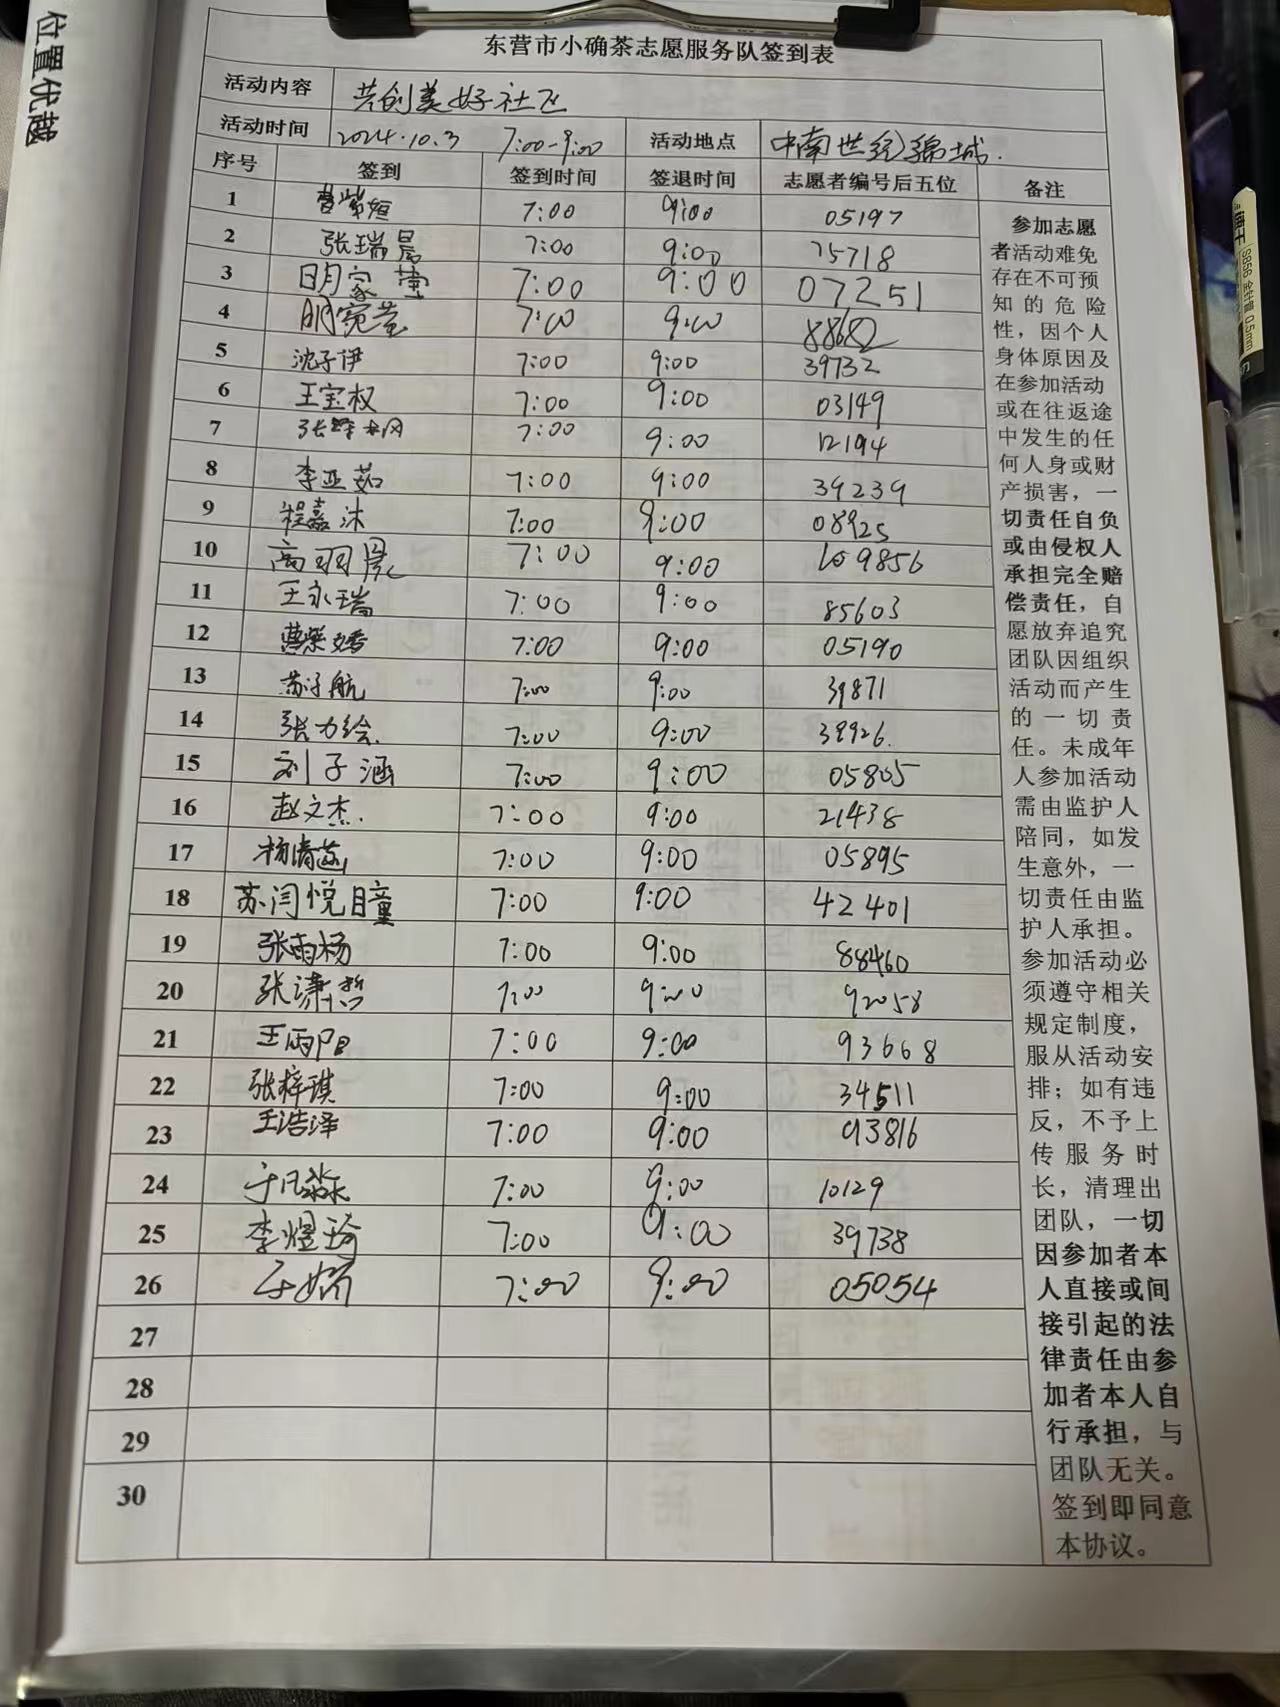 位置优越
东营市小确茶志愿服务队签到表
活动内容 共创美好社区
活动时间 2024.10.3 7:00-9:00 活动地点 中南世纪锦城.
序号 签到 签到时间 签退时间 志愿者编号后五位 备注
1 7:00 9:00 05197
2 张瑞晨 7:00 9:00 75718
3 明家莹 7:00 9:00 07251
4 明宛莹 7:00 9:00
5 沈子伊 7:00 9:00 39732
6 王宝权 7:00 9:00 03149
7 7:00 9:00 12194
8 李亚茹 7:00 9:00 39239
9 程嘉沐 7:00 9:00 08925
10 高羽晨 7:00 9:00 109856
11 王永瑞 7:00 9:00 85603
12 7:00 9:00 05190
13 苏子航 7:00 9:00 39871
14 张力绘 7:00 9:00 38926.
15 刘子涵 7:00 9:00 05805
16 赵文杰. 7:00 9:00 21438
17 杨清 7:00 9:00 05895
18 苏闫悦瞳 7:00 9:00 42401
19 张雨杨 7:00 9:00 88460
20 张潇哲 7:00 9:00 92058
21 王雨 7:00 9:00 93668
22 张梓琪 7:00 9:00 34511
23 王浩泽 7:00 9:00 93816
24 于凡淼 7:00 9:00 10129
25 李煜琦 7:00 9:00 39738
26 7:00 9:00 05054
27
28
29
30
参加志愿
者活动难免
存在不可预
知的危险
性，因个人
身体原因及
在参加活动
或在往返途
中发生的任
何人身或财
产损害，一
切责任自负
或由侵权人
承担完全赔
偿责任，自
愿放弃追究
团队因组织
活动而产生
的一切责
任。未成年
人参加活动
需由监护人
陪同，如发
生意外，一
切责任由监
护人承担。
参加活动必
须遵守相关
规定制度，
服从活动安
排；如有违
反，不予上
传服务时
长，清理出
团队，一切
因参加者本
人直接或间
接引起的法
律责任由参
加者本人自
行承担，与
团队无关。
签到即同意
本协议。